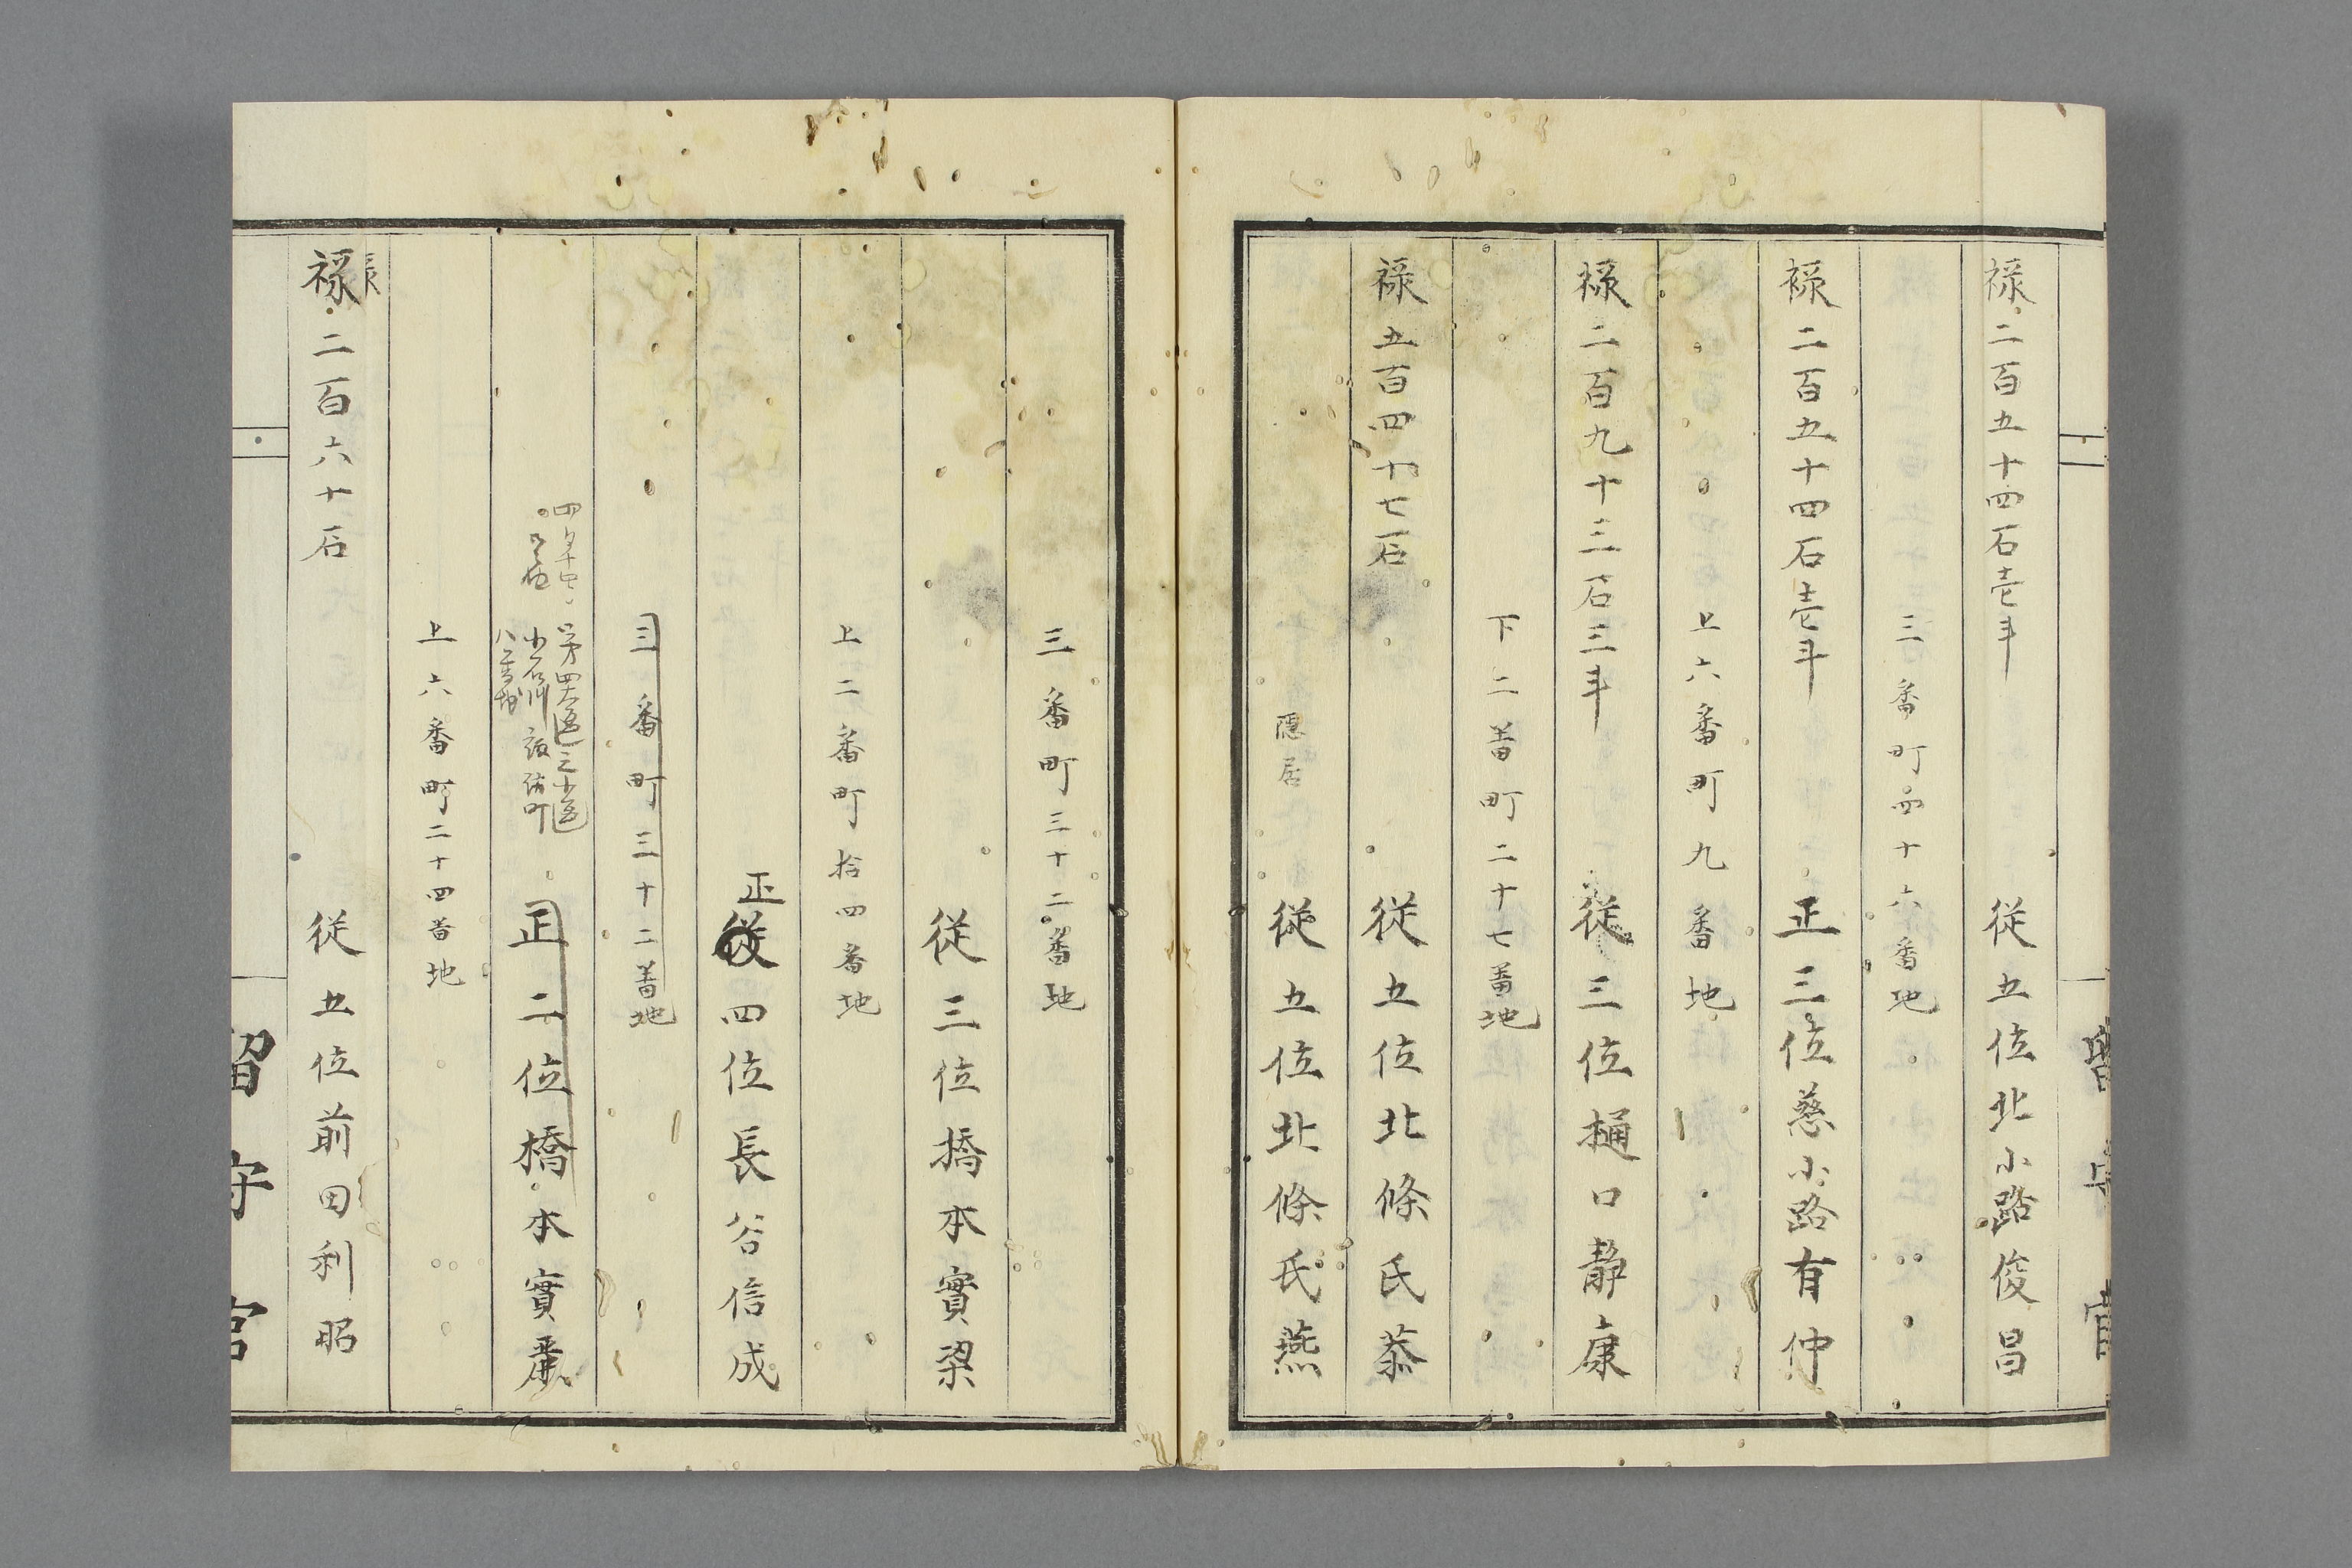 禄二百五十四石壱斗 従五位北小路俊昌
三番町四十六番地
禄二百五十四石壱斗 正三位慈小路有仲
上六番町九番地
禄二百九十三石三斗 従三位樋口静康
下二番町二十七番地
禄五百四十七石 従五位北條氏恭
隠居 従五位北條氏燕
三番町三十二番地
従三位橋本實梁
上二番町拾四番地
正
従四位長谷信成
三番町三十二番地
第四大区三小区
小石川
八番地
正二位橋本實麗
上六番町二十四番地
禄二百六十石 従五位前田利昭
留守官